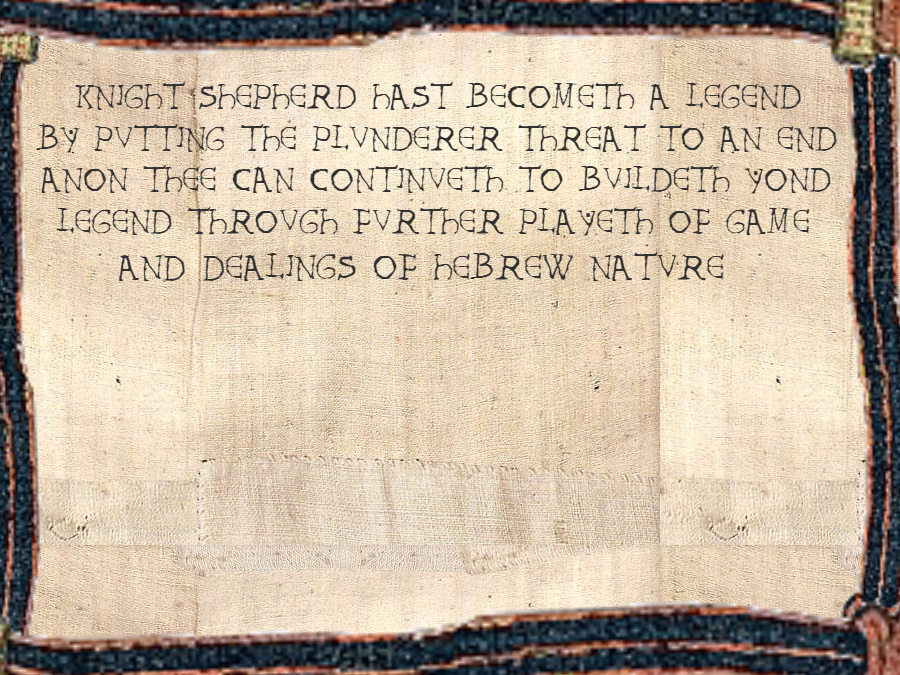 KNIGHT SHEPHERD HAST BECOMETH A LEGEND
BY PVTTING THE PLVNDERER THREAT TO AN END
ANON THEE CAN CONTINVETH TO BVILDETH YOND
LEGEND THROVGH FVRTHER PLAYETH OF GAME
AND DEALINGS OF HEBREW NATVRE